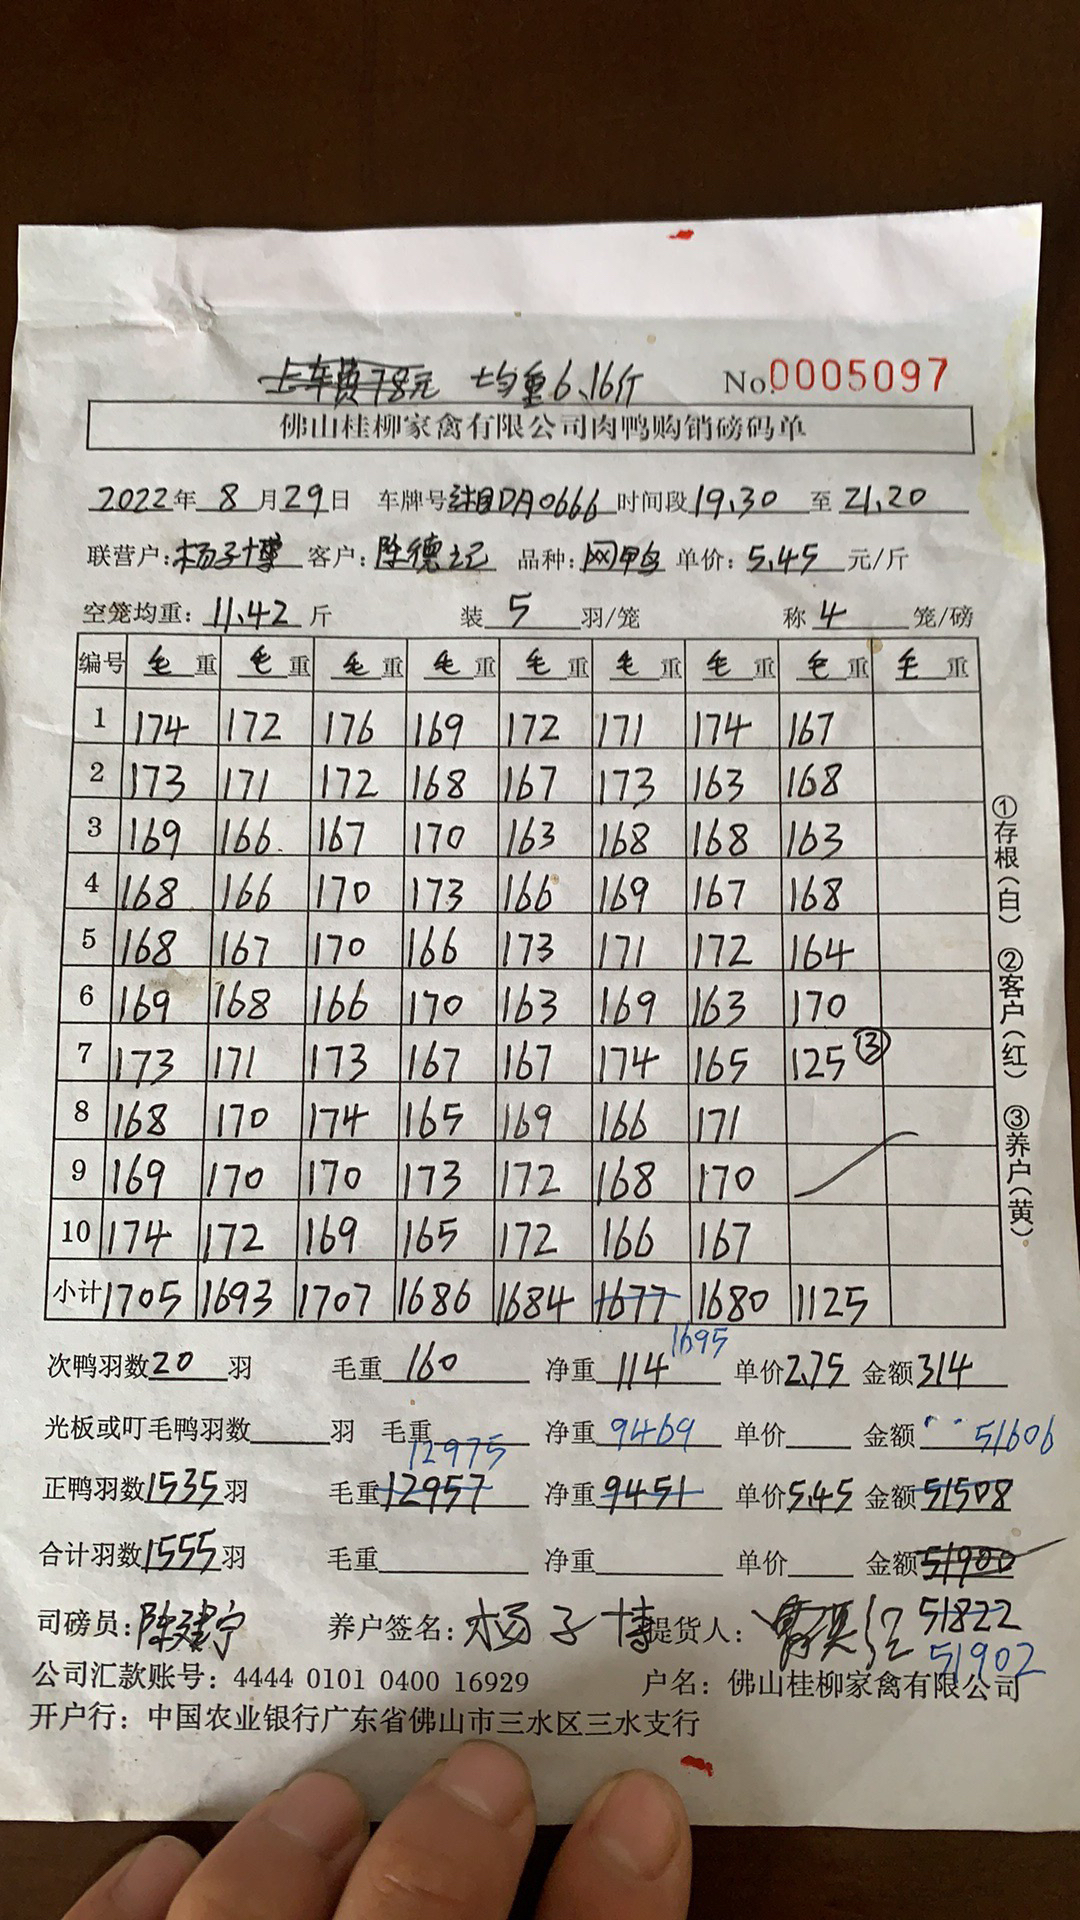 上车费78元 均重6.16斤 No.0005097
佛山桂柳家禽有限公司肉鸭购销磅码单
2022年 8 月29日 车牌号DA0666 时间段19.30 至 21.20
联营户:杨子博 客户:陈德记 品种:网鸭 单价:5.45 元/斤
空笼均重:11.42斤 装 5 羽/笼 称 4 笼/磅
编号 毛重 毛重 毛重 毛重 毛重 毛重 毛重 毛重 毛重
1 174 172 176 169 172 171 174 167
2 173 171 172 168 167 173 163 168
3 169 166 167 170 163 168 168 163
4 168 166 170 173 166 169 167 168
5 168 167 170 166 173 171 172 164
6 169 168 166 170 163 169 163 170
7 173 171 173 167 167 174 165 125 ③
8 168 170 174 165 169 166 171
9 169 170 170 173 172 168 170
10 174 172 169 165 172 166 167
小计 1705 1693 1707 1686 1684 1677 1680 1125
1695
次鸭羽数20羽 毛重 160 净重 114 单价2.75 金额314
光板或叮毛鸭羽数 羽 毛重 净重 9469 单价 金额 51606
12975
正鸭羽数1535羽 毛重12957 净重9451 单价5.45 金额51508
合计羽数1555羽 毛重 净重 单价 金额51900
司磅员:陈建宁 养户签名:杨子博 提货人: 51822
51902
公司汇款账号:4444 0101 0400 16929 户名:佛山桂柳家禽有限公司
开户行:中国农业银行广东省佛山市三水区三水支行
①存根(白) ②客户(红) ③养户(黄)